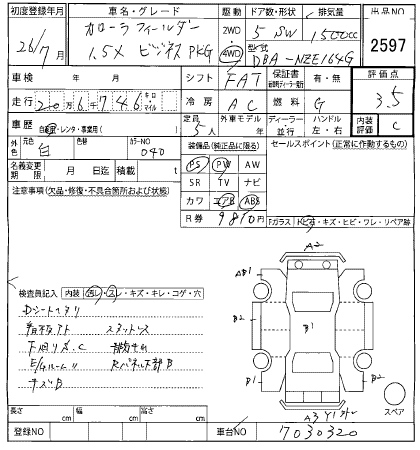 初度登録年月 車名・グレード 駆動 ドア数・形状 排気量 出品NO
26/7月 カローラ フィールダー 2WD 5 SW 1500cc 2597
1.5X ビジネス PKG 4WD 型式 DBA-NZE164G
車検 年 月 シフト FAT 保証書 有・無 評価点
走行 206746 キロ マイル 冷房 AC 燃料 G 3.5
車歴 自家・レンタ・事業用( ) 定員 5人 外車モデル ディーラー 並行 ハンドル 左・右 内装評価 C
元色 白 色替 カラーNO 040 装備品(純正品に限る) セールスポイント(正常に作動するもの)
名義変更期限 月 日迄 積載 t PS PW AW
注意事項(欠品・修復・不具合箇所および状態) SR TV ナビ
カワ エアB ABS
R券 9810円 Fガラス トビ石・キズ・ヒビ・ワレ・リペア跡
A2
AB1
B2 B1 B2
検査員記入 内装 汚レ・スレ・キズ・キレ・コゲ・穴
Dシート
看板アト スタットレス
下回りサ.C
E/Gルーム Rパネル下部B
キズB
B2 B2
A3
スペア
長さ cm 幅 cm 高さ cm
登録NO 車台NO 7030320